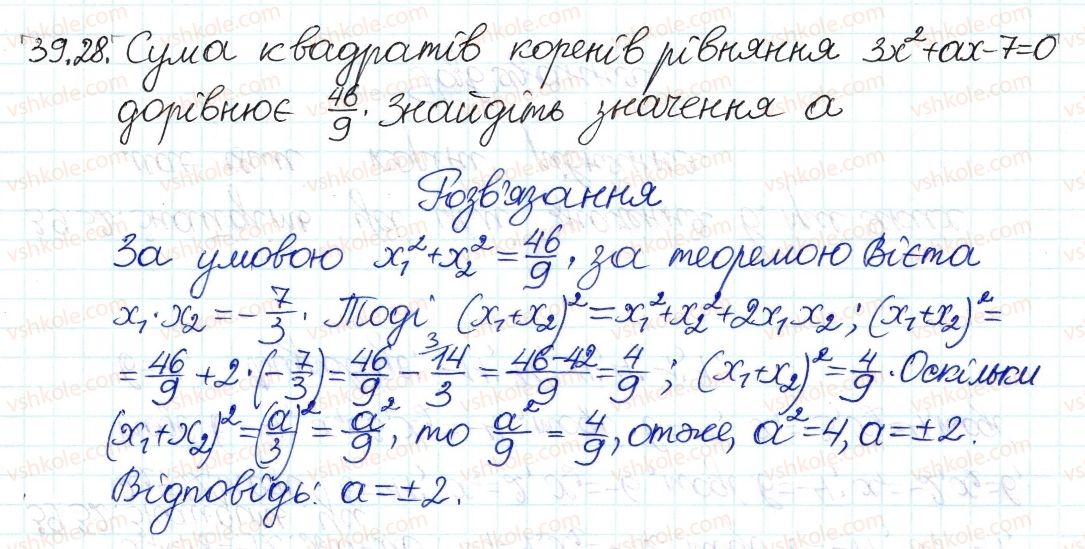 39.28. Сума квадратів коренів рівняння 3x²+ax-7=0
дорівнює 46/9. Знайдіть значення a
Розв'язання
За умовою x₁²+x₂²=46/9, за теоремою Вієта
x₁·x₂=-7/3. Тоді (x₁+x₂)²=x₁²+x₂²+2x₁x₂; (x₁+x₂)²=
=46/9+2·(-7/3)=46/9-14/3=(46-42)/9=4/9; (x₁+x₂)²=4/9. Оскільки
(x₁+x₂)²=(a/3)²=a²/9, то a²/9=4/9, отже, a²=4, a=±2.
Відповідь: a=±2.